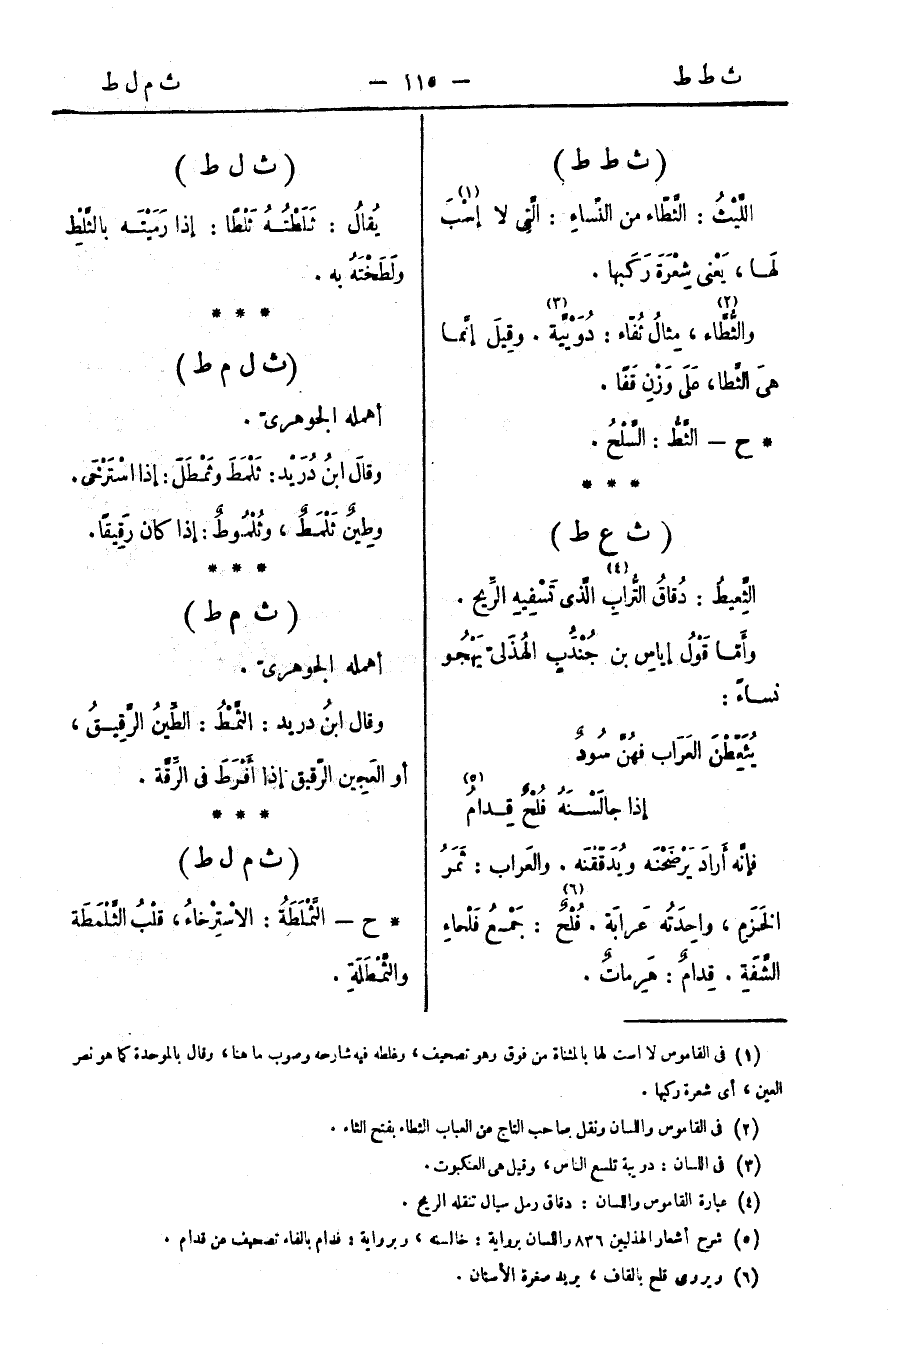 ث ط ط
— ١١٥ —
ث م ل ط
( ث ط ط )
اللَّيْثُ : الثَّطّاء من النّساءِ : الَّتِى لا إسْبَ (١)
لَهـا ، يَعْنى شِعْرَةَ رَكَبِها .
والثُّطَّاء (٢) ، مِثالُ ثُفّاء : دُوَيْبَّة (٣) . وقِيلَ إنَّمـا
هىَ الثَّطا، عَلَى وَزْنِ قَفًا .
* ح — الثَّطُّ : السَّلْحُ .
* * *
( ث ع ط )
الثَّعِيطُ : دُقاقُ التُّرابِ (٤) الَّذى تَسْفِيهِ الرِّيح .
وأَمّا قَوْلُ إياسِ بن جُنْدَُبٍ الهُذَلىّ يَهْجُو
نساءً :
يُثَعِّطْنَ العَرَاب فهُنَّ سُودٌ
إذا جالَسْـنَهُ فُلْحٌ قِـدامُ (٥)
فإنَّه أَرادَ يَرْضَخْنَه ويُدَقِّقْنَه . والعَراب : ثَمَرُ
الخَزَمِ ، واحِدَتُه عَرابَة . فُلْحٌ (٦) : جَمْـعُ فَلْحاءِ
الشَّفَةِ . قِدامٌ : هَرِماتٌ .
( ث ل ط )
يُقالُ : ثَـلَطْتُـهُ ثَلْطًا : إذا رَمَيْتَـه بالثَّلْطِ
ولَطَخْتَهُ به .
* * *
( ث ل م ط )
أهمله الجوهرىّ .
وقالَ ابنُ دُرَيْد: ثَلْمَطَ وثَمْطَلَ : إذا اسْتَرْخَى .
وطِينٌ ثَلْمَطٌ ، وثُلْمُوطٌ : إذا كان رَقِيقًا.
* * *
( ث م ط )
أهمله الجوهرىّ .
وقال ابنُ دريد : الثَّمْطُ : الطِّينُ الرَّقِيـقُ ،
أو العَجِين الرّقيق إذا أَفْرَطَ فى الرِّقَّة .
* * *
( ث م ل ط )
* ح — الثَّمْلَطَةُ : الاسْتِرْخاءُ ، قَلْبُ الثَّلْمَطَة
والثَّمْطَلَةِ .
(١) فى القاموس لا است لها بالمثناة من فوق وهو تصحيف ، وغلطه فيه شارحه وصوب ما هنا ، وقال بالموحدة كما هو نص
العين ، أى شعرة ركبها .
(٢) فى القاموس واللسان ونقل صاحب التاج عن العباب الثطاء بفتح الثاء .
(٣) فى اللسان : دويبة تلسع الناس ، وقيل هى العنكبوت .
(٤) عبارة القاموس واللسان : دقاق رمل سيال تنقله الريح .
(٥) شرح أشعار الهذليين ٨٣٦ واللسان برواية : خالسنه ، وبرواية : فدام بالفاء تصحيف من قدام .
(٦) ويروى قلح بالقاف ، يريد صفرة الأسنان .